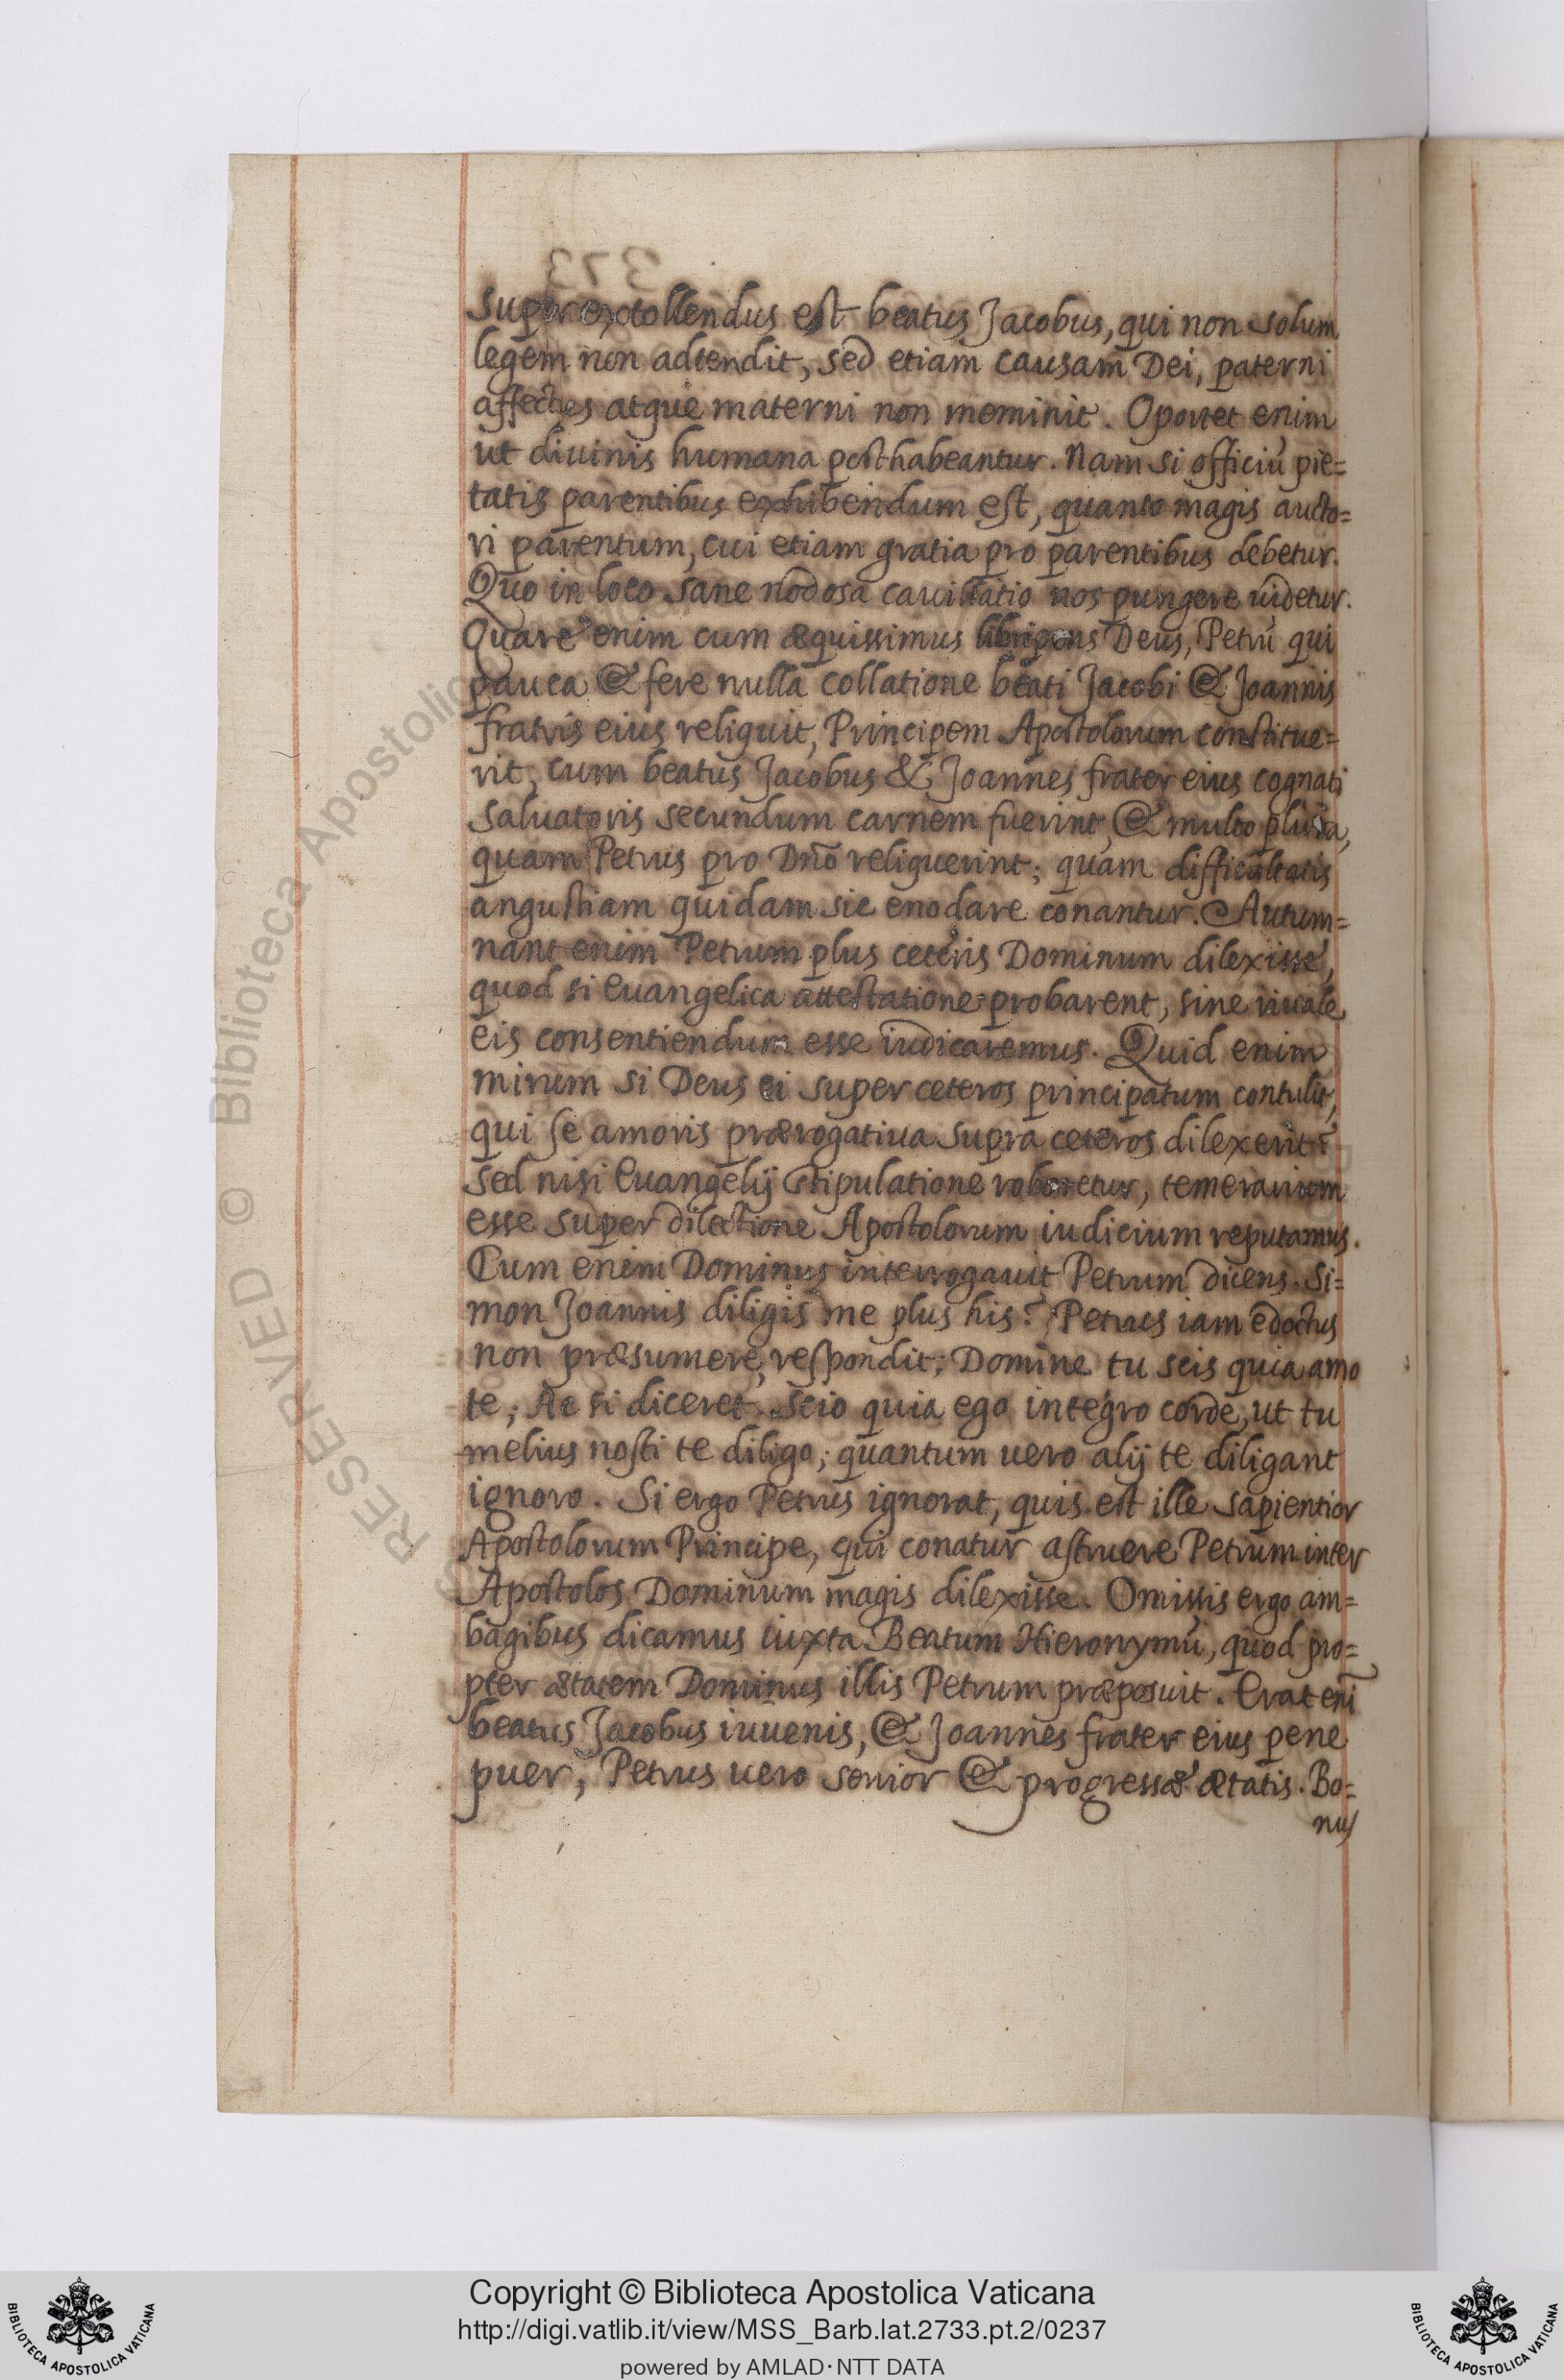 Superextollendus est beatus Jacobus, qui non solum
legem non adtendit, sed etiam causam Dei, paterni
affectus atque materni non meminit. Oportet enim
ut diuinis humana posthabeantur. Nam si officiū pie=
tatis parentibus exhibendum est, quanto magis aucto=
ri parentum, cui etiam gratia pro parentibus debetur.
Quo in loco sane nodosa cauillatio nos pungere uidetur.
Quare enim cum æquissimus libripens Deus, Petrū qui
pauca & fere nulla collatione beati Jacobi & Joannis
fratris eius reliquit, Principem Apostolorum constitue=
rit, cum beatus Jacobus & Joannes frater eius cognati
saluatoris secundum carnem fuerint, & multo plura,
quam Petrus pro Dño reliquerint; quam difficultatis
angustiam quidam sic enodare conantur. Autum=
nant enim Petrum plus ceteris Dominum dilexisse,
quod si Euangelica attestatione probarent, sine riuale
eis consentiendum esse iudicaremus. Quid enim
mirum si Deus ei super ceteros principatum contulit,
qui se amoris prærogatiua supra ceteros dilexerit?
sed nisi Euangelij stipulatione roboretur, temerarium
esse super dilectione Apostolorum iudicium reputamus.
Cum enim Dominus interrogauit Petrum dicens. Si=
mon Joannis diligis me plus his? Petrus iam edoctus
non præsumere, respondit; Domine tu scis quia amo
te; Ac si diceret. Scio quia ego integro corde, ut tu
melius nosti te diligo; quantum uero alij te diligant
ignoro. Si ergo Petrus ignorat, quis est ille sapientior
Apostolorum Principe, qui conatur astruere Petrum inter
Apostolos Dominum magis dilexisse. Omissis ergo am=
bagibus dicamus iuxta Beatum Hieronymū, quod pro=
pter ætatem Dominus illis Petrum præposuit. Erat enī
beatus Jacobus iuuenis, & Joannes frater eius pene
puer, Petrus uero senior & progressæ ætatis. Bo=
nus
Copyright © Biblioteca Apostolica Vaticana
http://digi.vatlib.it/view/MSS_Barb.lat.2733.pt.2/0237
powered by AMLAD·NTT DATA